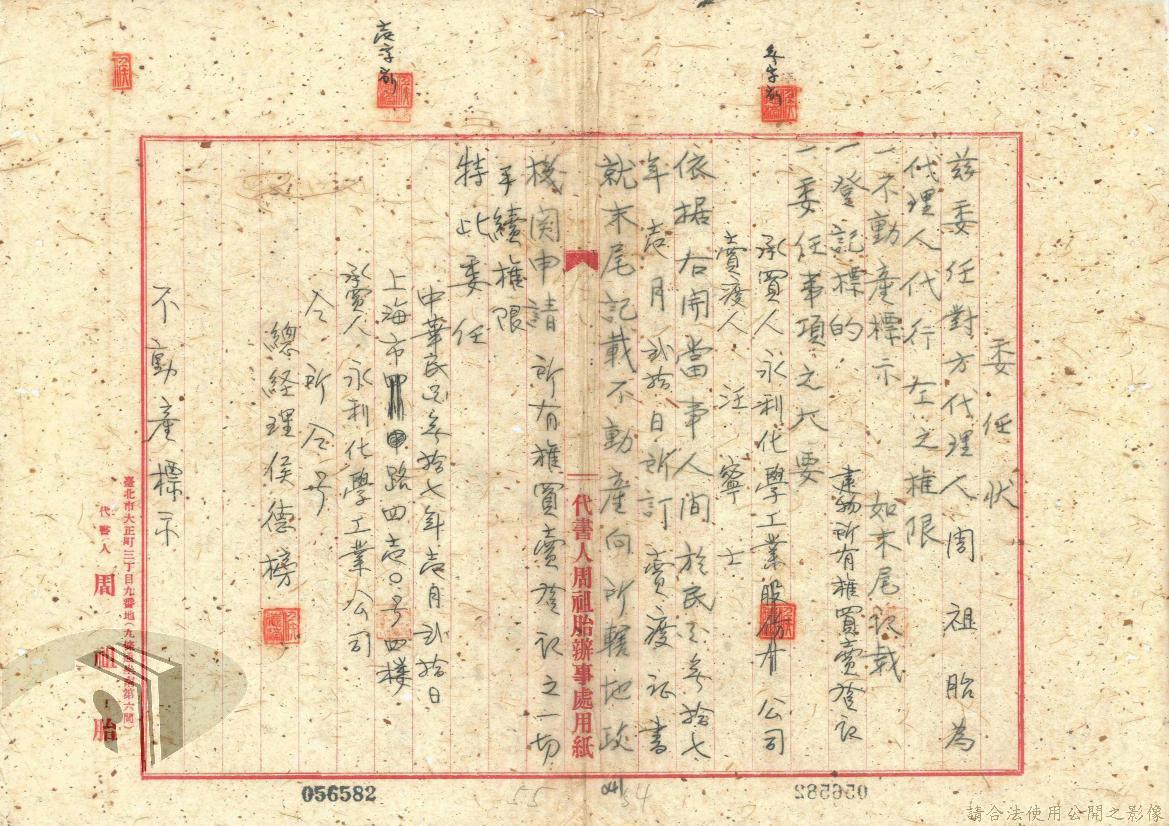 委任狀
茲委任對方代理人周祖胎為
代理人代行左之権限
一不動產標示 如末尾記載
一登記標的 建物所有権買賣登記
一委任事項之大要
承買人 永利化學工業 公司
賣渡人 汪寧士
依据右開當事人間於民國叁拾七
年壱月弐拾日所訂賣渡証書
就末尾記載不動產向所轄地政
機関申請所有権買賣登記之一切
手續権限
特此委任
中華民國叁拾七年壱月弐拾日
上海市四川路四壱〇号四樓
承買人 永利化學工業公司
仝所仝号
總経理 侯德榜
不動產標示
叁字訂
壱字訂
代書人周祖胎辦事處用紙
臺北市大正町三丁目九番地
代書人 周祖胎
056582
056582
55
54
請合法使用公開之影像